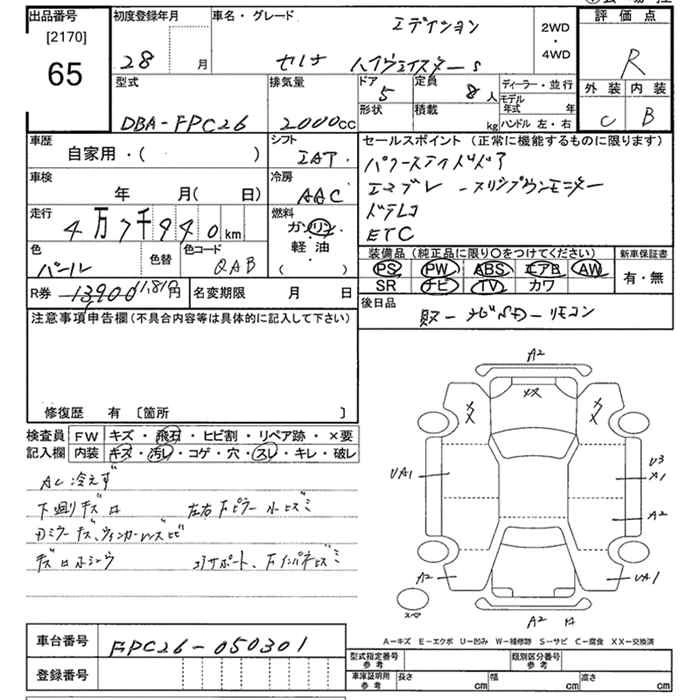 出品番号
[2170]
65
初度登録年月
28 月
車名・グレード
エディション
セレナ ハイウェイスターS
2WD
・
4WD
評価点
R
外装 内装
C B
型式
DBA-FPC26
排気量
2000cc
ドア
5
定員
8人
形状
積載
kg
ディーラー・並行
モデル年式 年
ハンドル 左・右
車歴
自家用・( )
シフト
IAT
車検
年 月( 日)
冷房
AAC
走行
4万7千940km
燃料
ガソリン
軽・油
( )
色
パール
色替
色コード
QAB
R券 13900 11,810円
名変期限 月 日
セールスポイント(正常に機能するものに限ります)
パワースライドドア
エマブレ -スリップダウンモニター
ドラレコ
ETC
装備品(純正品に限り○をつけてください)
PS PW ABS エアB AW
SR ナビ TV カワ
新車保証書
有・無
後日品
取-ナビSD-リモコン
注意事項申告欄(不具合内容等は具体的に記入して下さい)
修復歴 有 [箇所 ]
検査員記入欄
FW キズ・飛石・ヒビ割・リペア跡・×要
内装 キズ・汚レ・コゲ・穴・スレ・キレ・破レ
AC冷えず
下廻りキズ
キズ
コアサポート、
A2
UA1
A2
U3
X1
A2
UA1
A2
スペア
A-キズ E-エクボ U-凹み W-補修跡 S-サビ C-腐食 XX-交換済
車台番号 FPC26-050301
登録番号
型式指定番号 参考
類別区分番号 参考
車庫証明用 参考
長さ cm 幅 cm 高さ cm